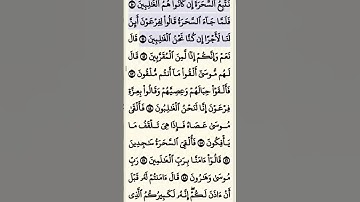 نَتَّبِعُ ٱلسَّحَرَةَ إِن كَانُوا۟ هُمُ ٱلْغَـٰلِبِينَ ۝
فَلَمَّا جَآءَ ٱلسَّحَرَةُ قَالُوا۟ لِفِرْعَوْنَ أَئِنَّ
لَنَا لَأَجْرًا إِن كُنَّا نَحْنُ ٱلْغَـٰلِبِينَ ۝ قَالَ
نَعَمْ وَإِنَّكُمْ إِذًا لَّمِنَ ٱلْمُقَرَّبِينَ ۝ قَالَ
لَهُم مُّوسَىٰٓ أَلْقُوا۟ مَآ أَنتُم مُّلْقُونَ ۝
فَأَلْقَوْا۟ حِبَالَهُمْ وَعِصِيَّهُمْ وَقَالُوا۟ بِعِزَّةِ
فِرْعَوْنَ إِنَّا لَنَحْنُ ٱلْغَـٰلِبُونَ ۝ فَأَلْقَىٰ
مُوسَىٰ عَصَاهُ فَإِذَا هِىَ تَلْقَفُ مَا
يَأْفِكُونَ ۝ فَأُلْقِىَ ٱلسَّحَرَةُ سَـٰجِدِينَ
۝ قَالُوٓا۟ ءَامَنَّا بِرَبِّ ٱلْعَـٰلَمِينَ ۝ رَبِّ
مُوسَىٰ وَهَـٰرُونَ ۝ قَالَ ءَامَنتُمْ لَهُۥ قَبْلَ
أَنْ ءَاذَنَ لَكُمْ إِنَّهُۥ لَكَبِيرُكُمُ ٱلَّذِى